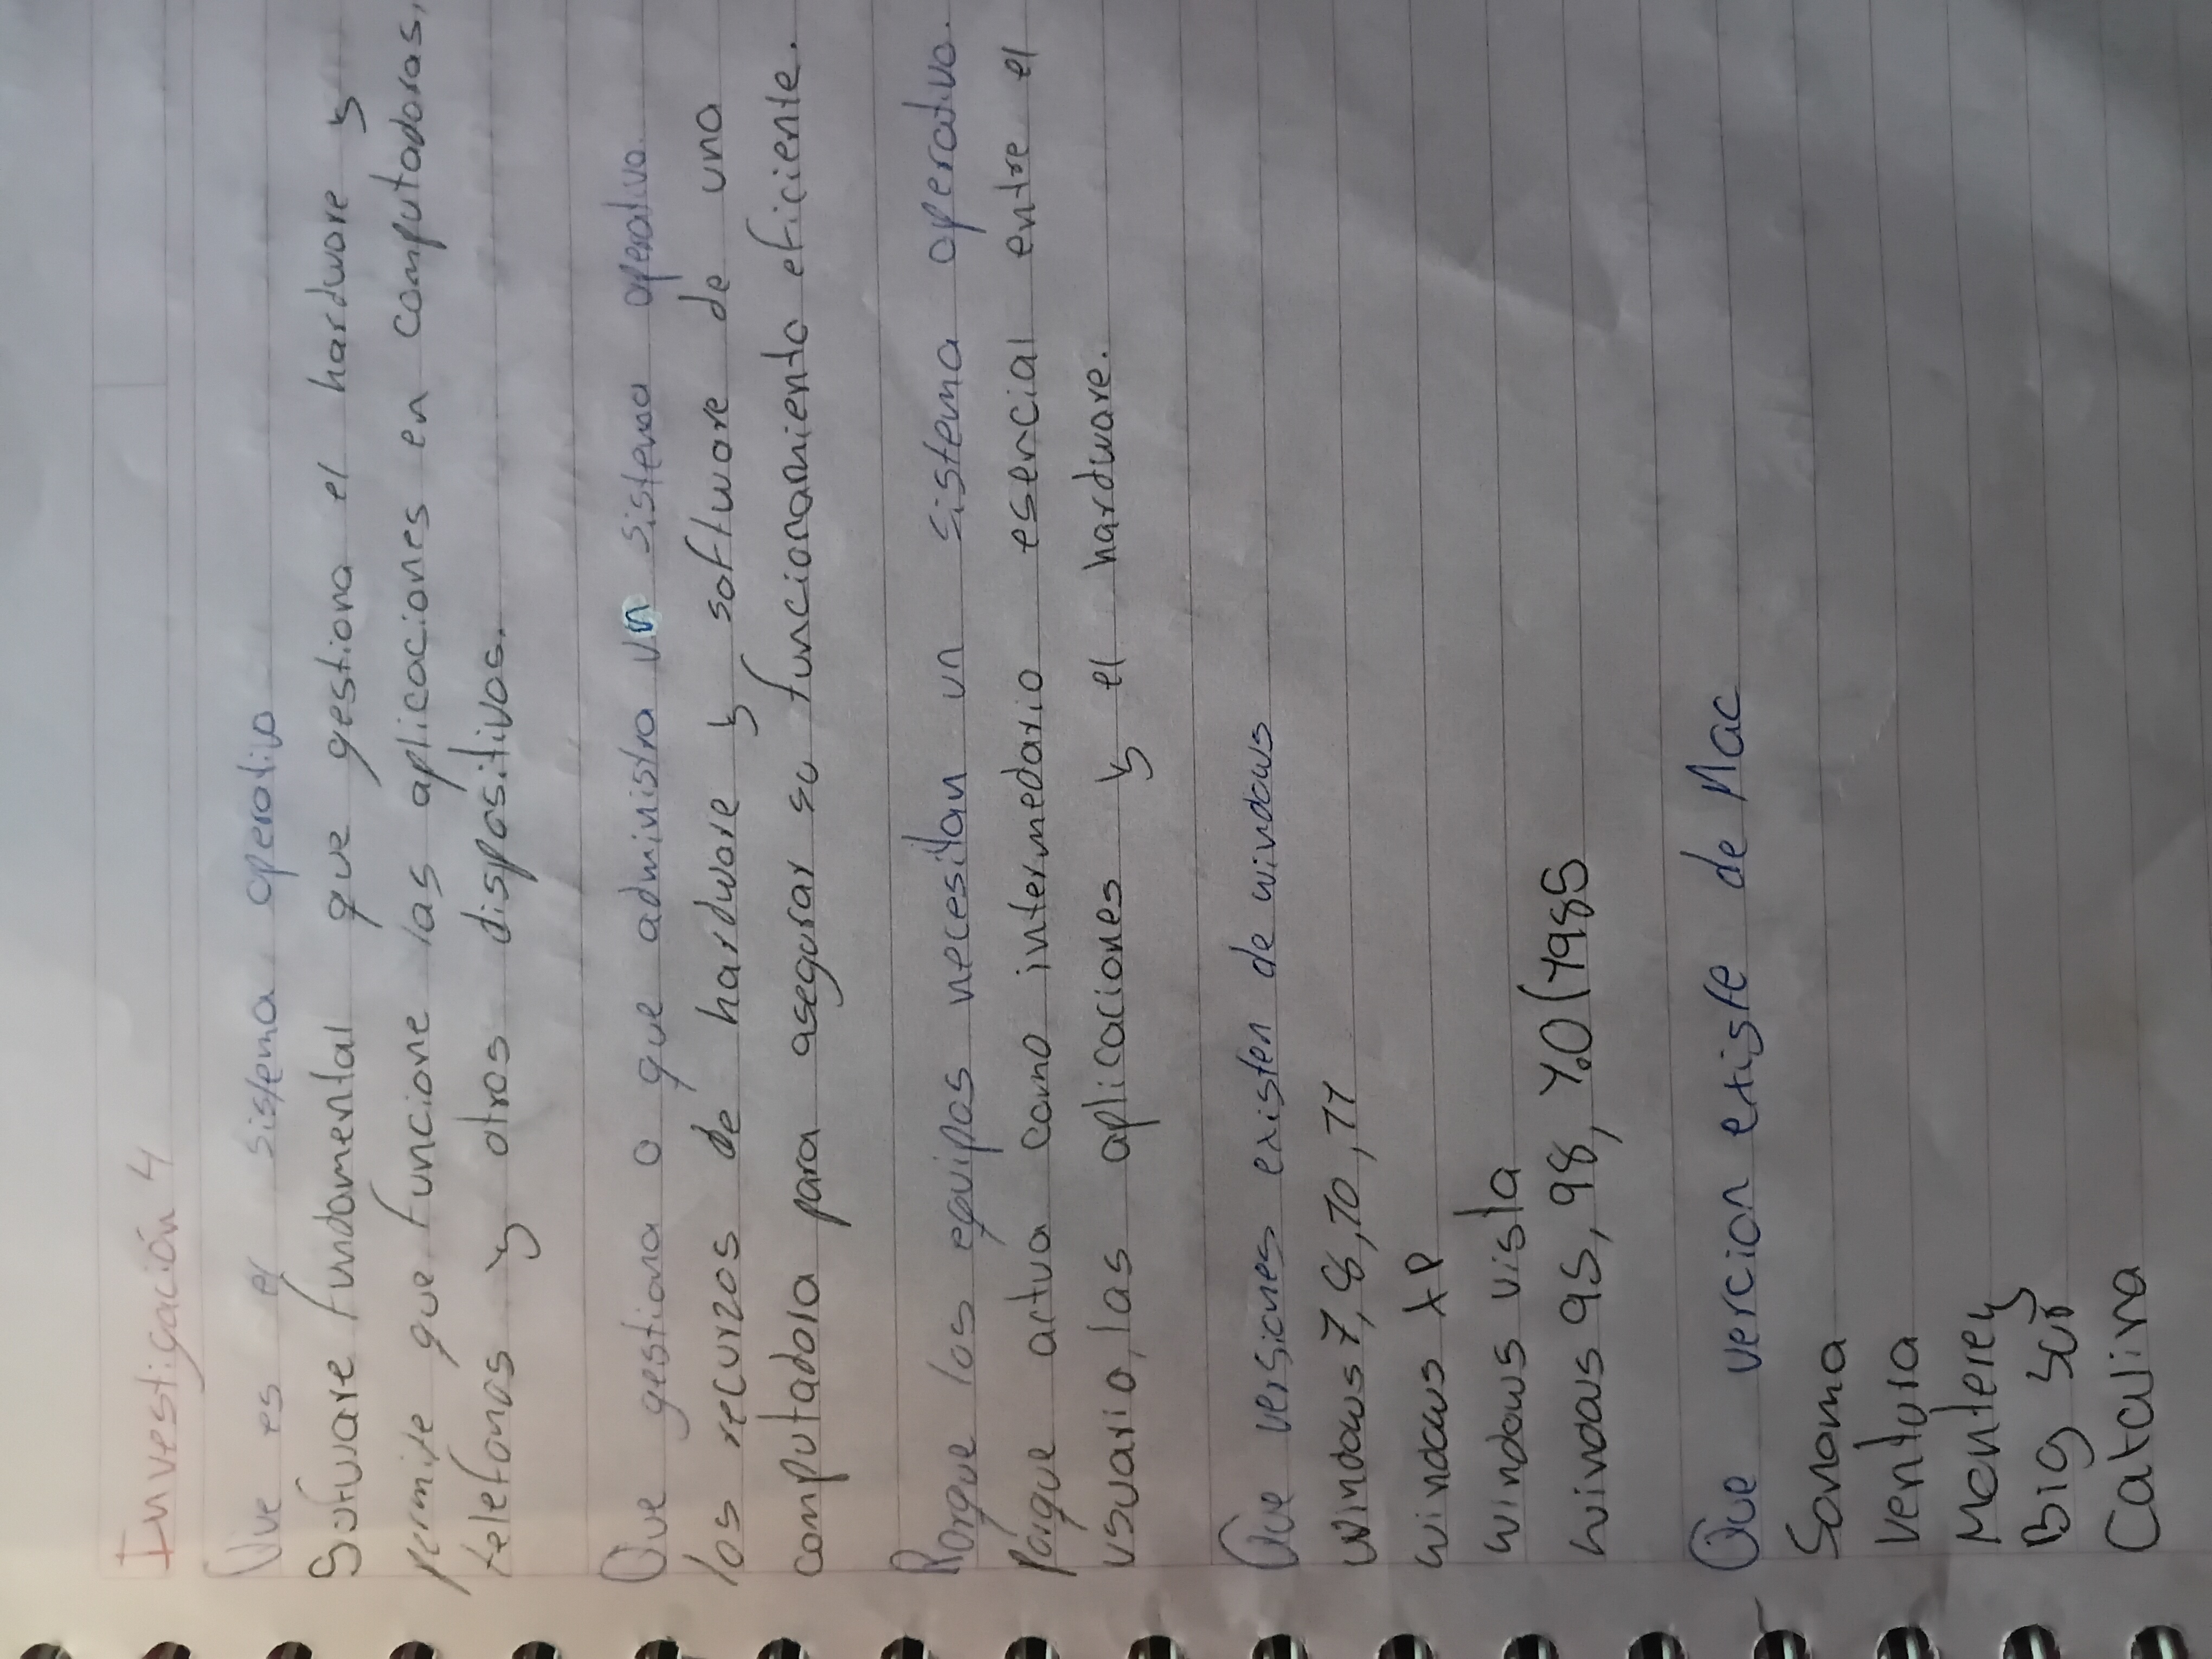 Investigación 4
Que es el sistema operativo
Software fundamental que gestiona el hardware y
permite que funcione las aplicaciones en computadoras,
telefonos y otros dispositivos.
Que gestiona o que administra un sistema operativo.
los recurzos de hardware y software de una
computadora para asegurar su funcionamiento eficiente.
Porque los equipos necesitan un sistema operativo.
Porque actua como intermedario esencial entre el
usuario, las aplicaciones y el hardware.
Que versiones existen de windows
windows 7, 8, 10, 11
windows XP
windows vista
windows 95, 98, 1.0 (1985
Que vercion existe de Mac
Sonoma
Ventura
Monterey
Big sur
Catalina